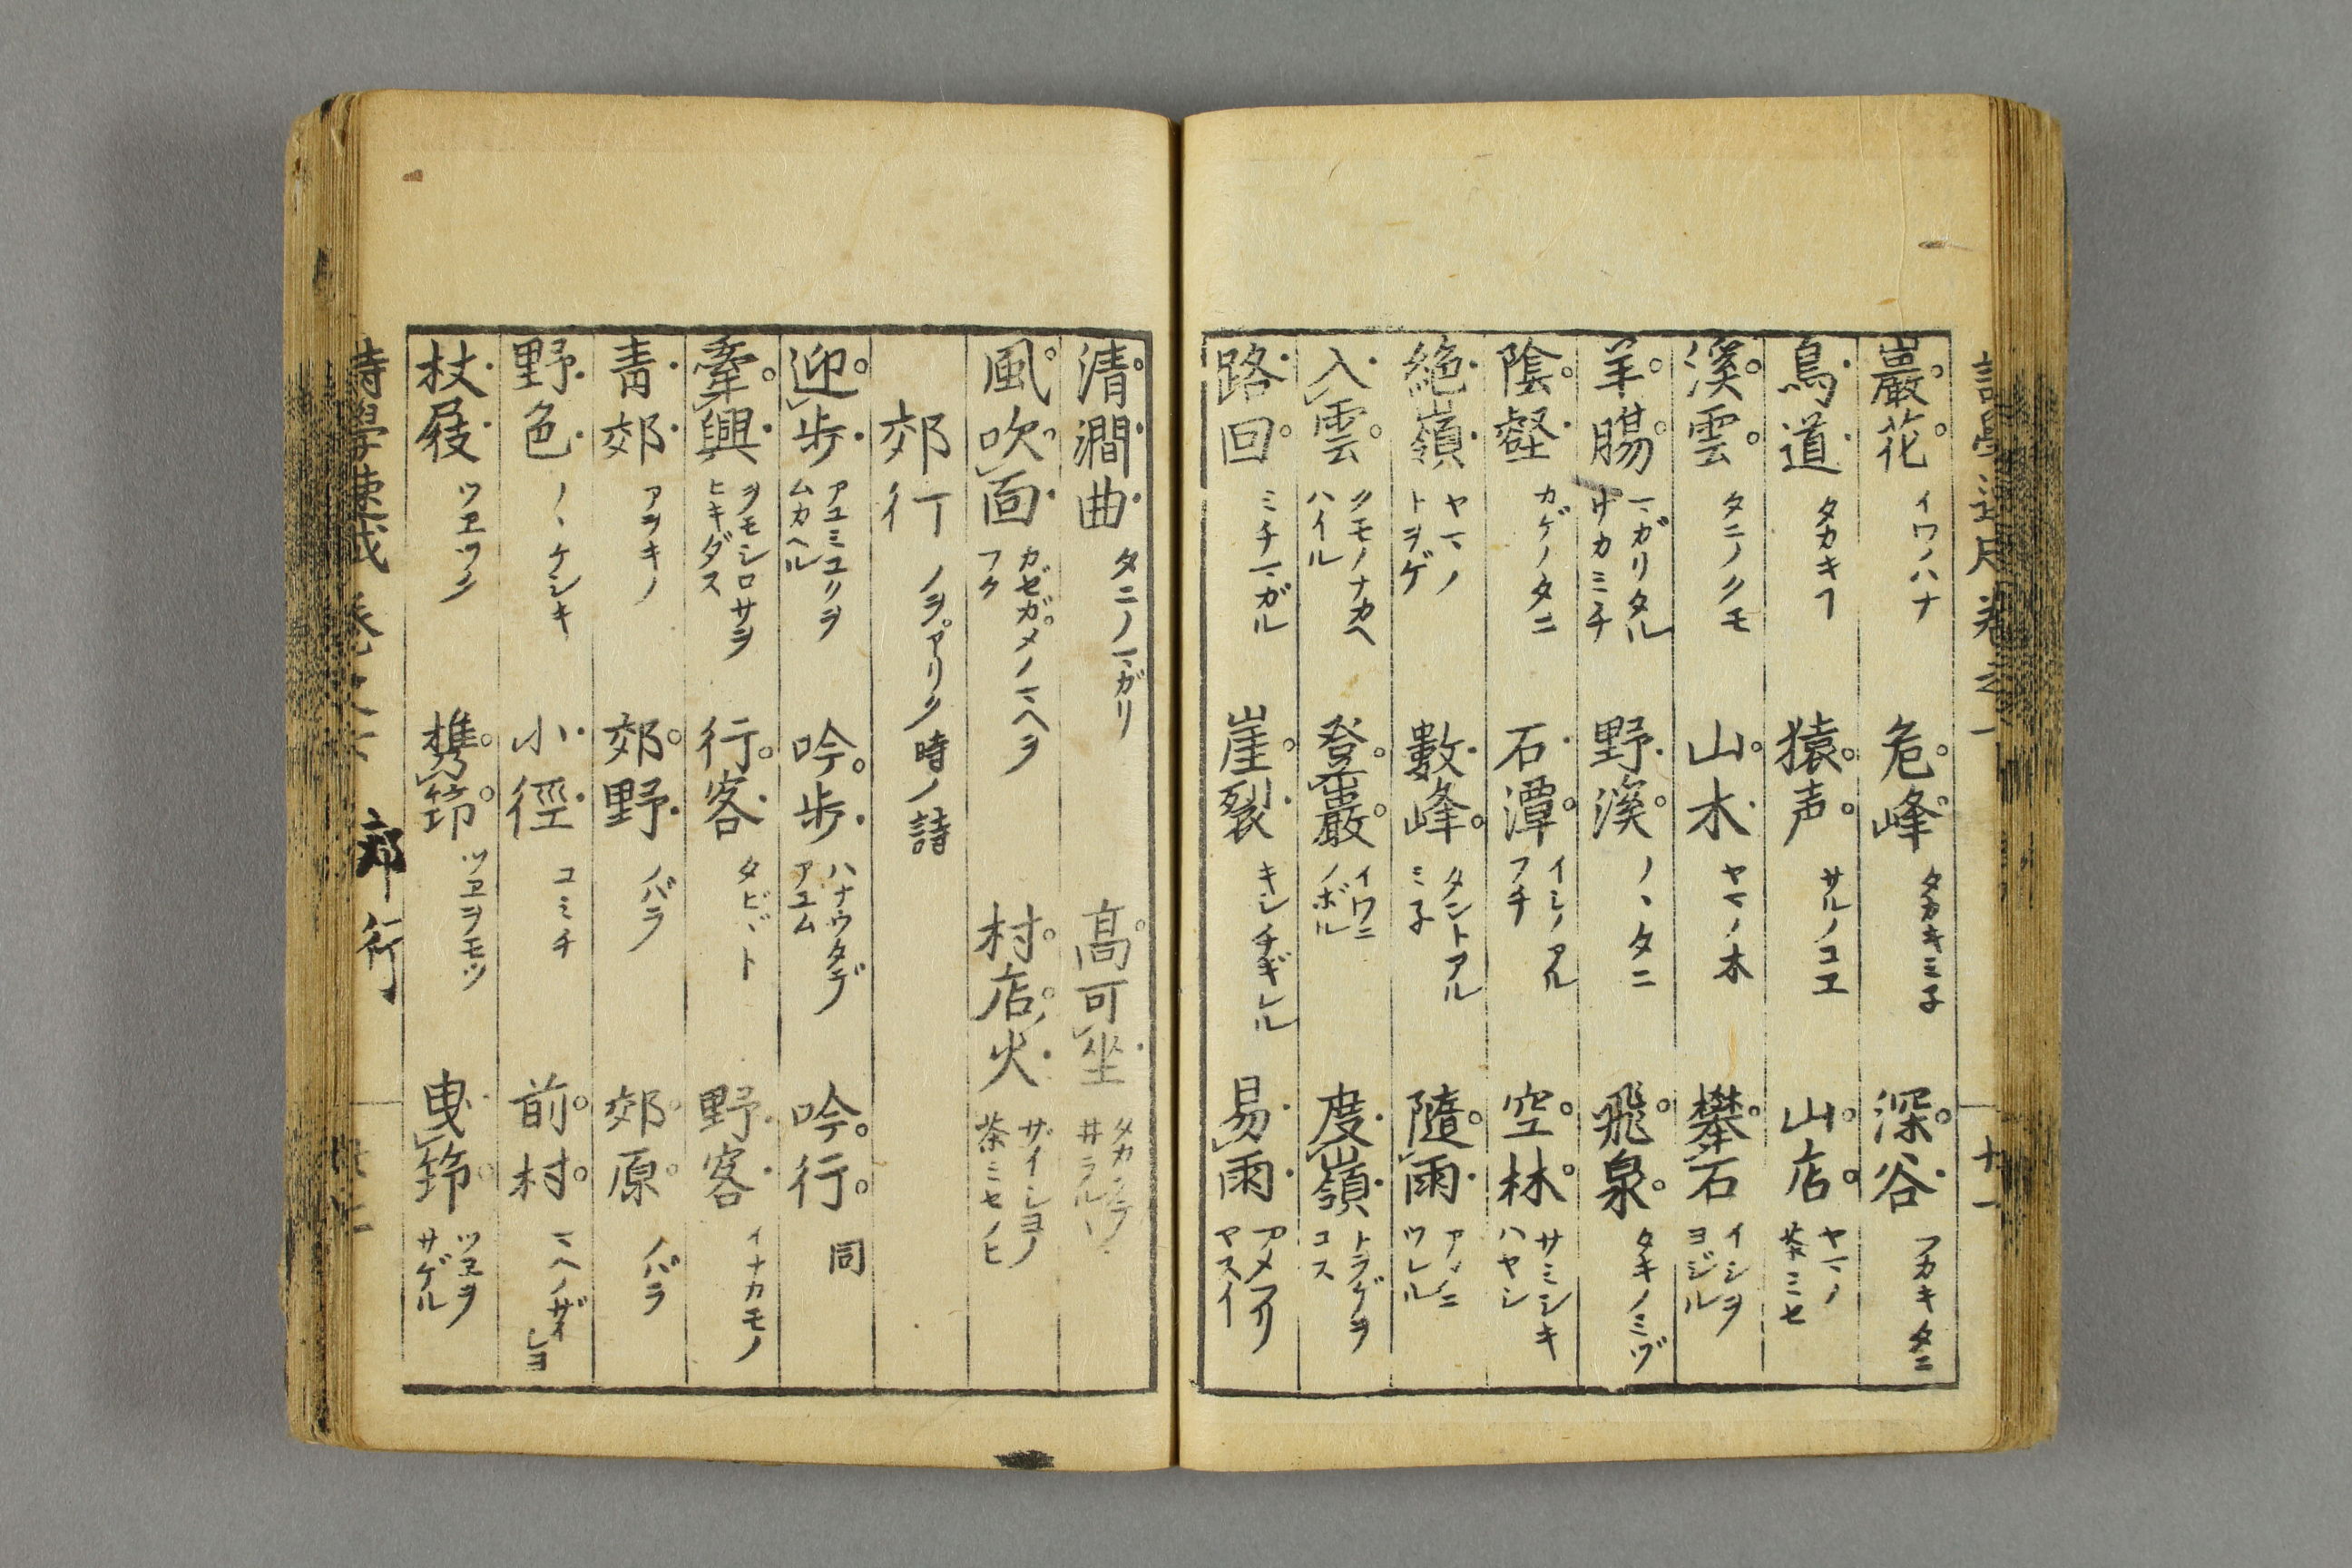 巖花 イワノハナ 危峰 タカキミ子 深谷 フカキタニ
鳥道 タカキフ 猿声 サルノコヱ 山店 ヤマノ茶ミセ
溪雲 タニノクモ 山木 ヤマノ木 攀石 イシヲヨジル
羊腸 マガリタルサカミチ 野溪 ノヽタニ 飛泉 タキノミヅ
陰壑 カゲノタニ 石潭 イシノアルフチ 空林 サミシキハヤシ
絶嶺 ヤマノトヲゲ 數峰 タントアルミ子 隨雨 アメニツレル
入雲 クモノナカヘハイル 登巖 イワニノボル 度嶺 トヲゲヲコス
路回 ミチマガル 崖裂 キシチギレル 易雨 アメフリヤスイ
清澗曲 タニノマガリ 高可坐 タカ
風吹面 カゼガメノマヘヲフク 村店火 ザイシヨノ茶ミセノヒ
郊行 ノヲアリク時ノ詩
迎歩 アユミユクヲムカヘル 吟歩 ハナウタデアユム 吟行 同
牽興 ヲモシロサヲヒキダス 行客 タビヽト 野客 イナカモノ
青郊 アヲキノ 郊野 ノバラ 郊原 ノバラ
野色 ノヽケシキ 小徑 コミチ 前村 マヘノザイシヨ
杖屐 ツヱクツ 携筇 ツヱヲモツ 曳筇 ツヱヲサゲル
郊行